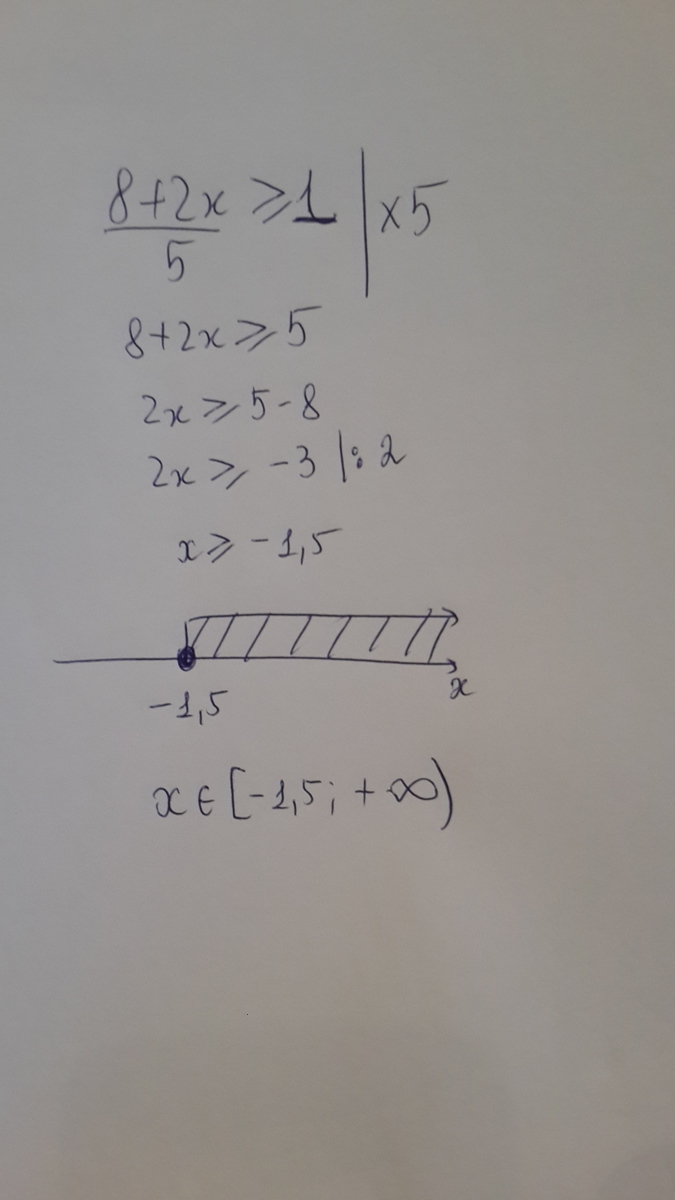 8+2x ≥ 1 | ×5
5
8+2x ≥ 5
2x ≥ 5-8
2x ≥ -3 |: 2
x ≥ -1,5
-1,5
x
x ∈ [-1,5; +∞)